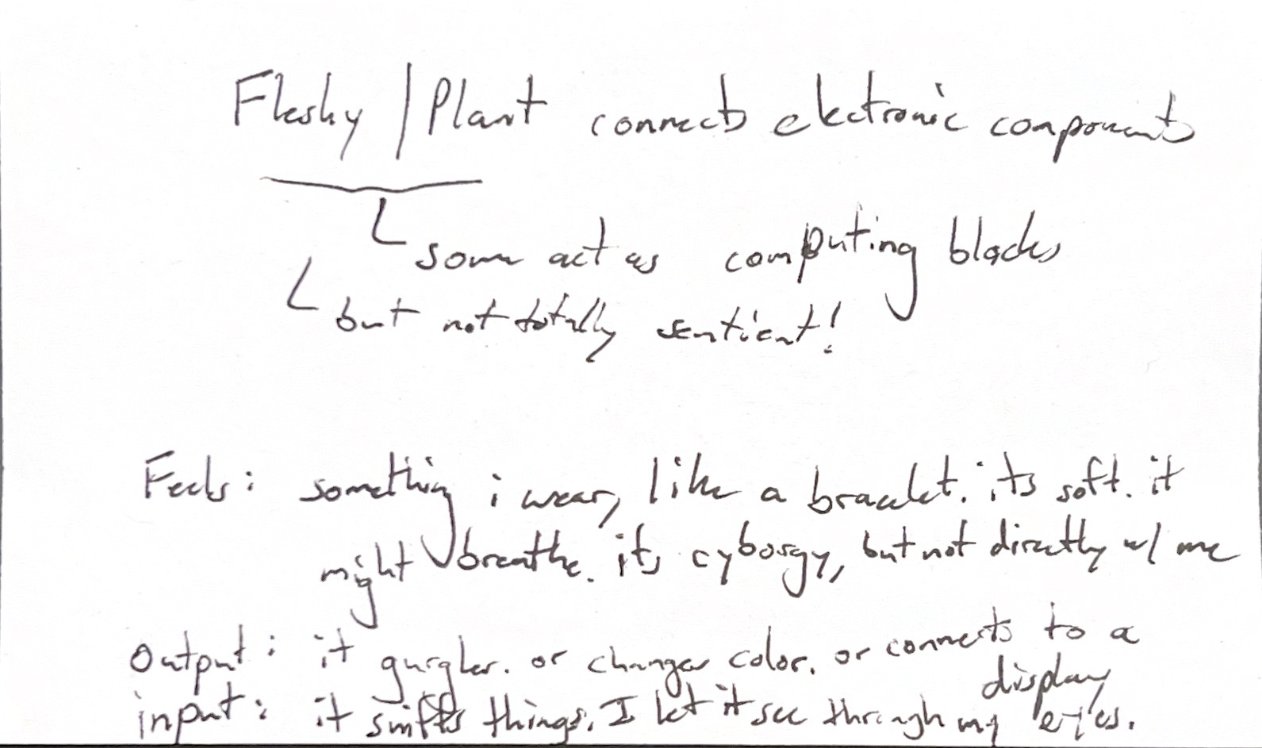 Fleshy / Plant connects electronic components
some act as computing blocks
but not totally sentient!
Feels: something i wear, like a bracelet. its soft. it
might breathe. its cyborgy, but not directly w/ me
Output: it gurgles. or changes color. or connects to a
display
input: it sniffs things. I let it see through my eyes.